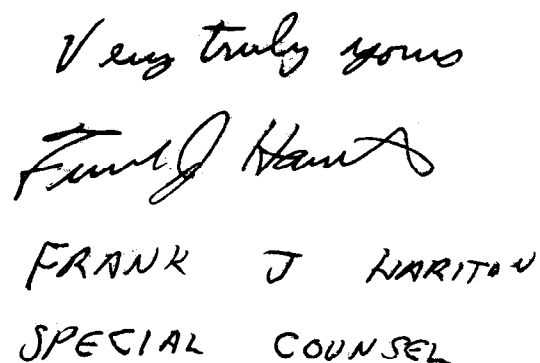 Very truly yours
Frank J Hariton
FRANK J HARITON
SPECIAL COUNSEL